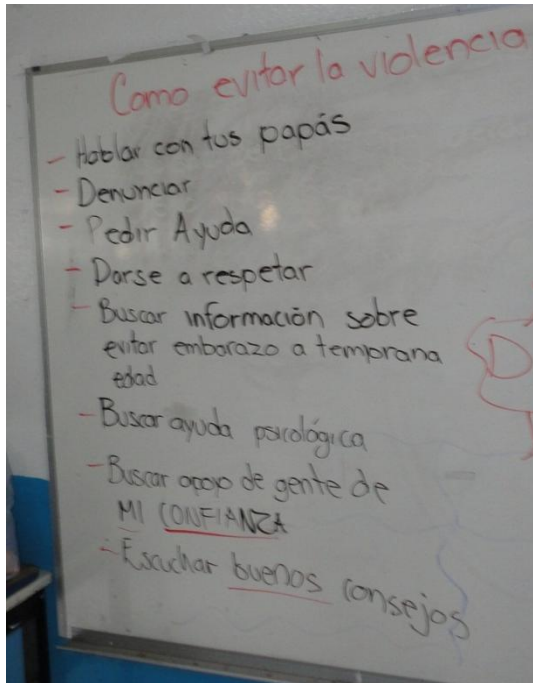 Como evitar la violencia
- Hablar con tus papás
- Denunciar
- Pedir Ayuda
- Darse a respetar
- Buscar información sobre
evitar embarazo a temprana
edad
- Buscar ayuda psicológica
- Buscar apoyo de gente de
MI CONFIANZA
- Escuchar buenos consejos
D